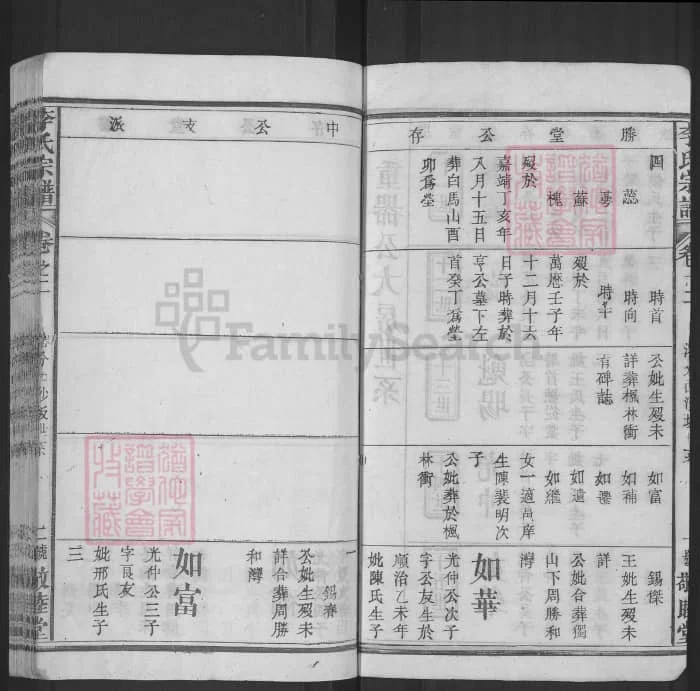 李氏宗譜
卷之二
敬睦堂
勝堂公存
四
蕊
夢
蘇
槐
歿於
嘉靖丁亥年
八月十五日
葬白馬山酉
卯為塋
時首
時向
時午
歿於
萬曆壬子年
十二月十六
日子時葬於
亨公墓下左
首癸丁為塋
公妣生歿未
詳葬楓林衝
有碑誌
如富
如補
如選
如遺
如繼
女一適苗庠
生陳裴明次
子
公妣葬於楓
林衝
錫傑
王妣生歿未
詳
公妣合葬獨
山下周勝和
灣
如華
光仲公次子
字公友生於
順治乙未年
妣陳氏生子
中公支派
一
錫春
公妣生歿未
詳合葬周勝
和灣
如富
光仲公三子
字長友
妣邢氏生子
三
李氏宗譜
卷之二
敬睦堂
FamilySearch